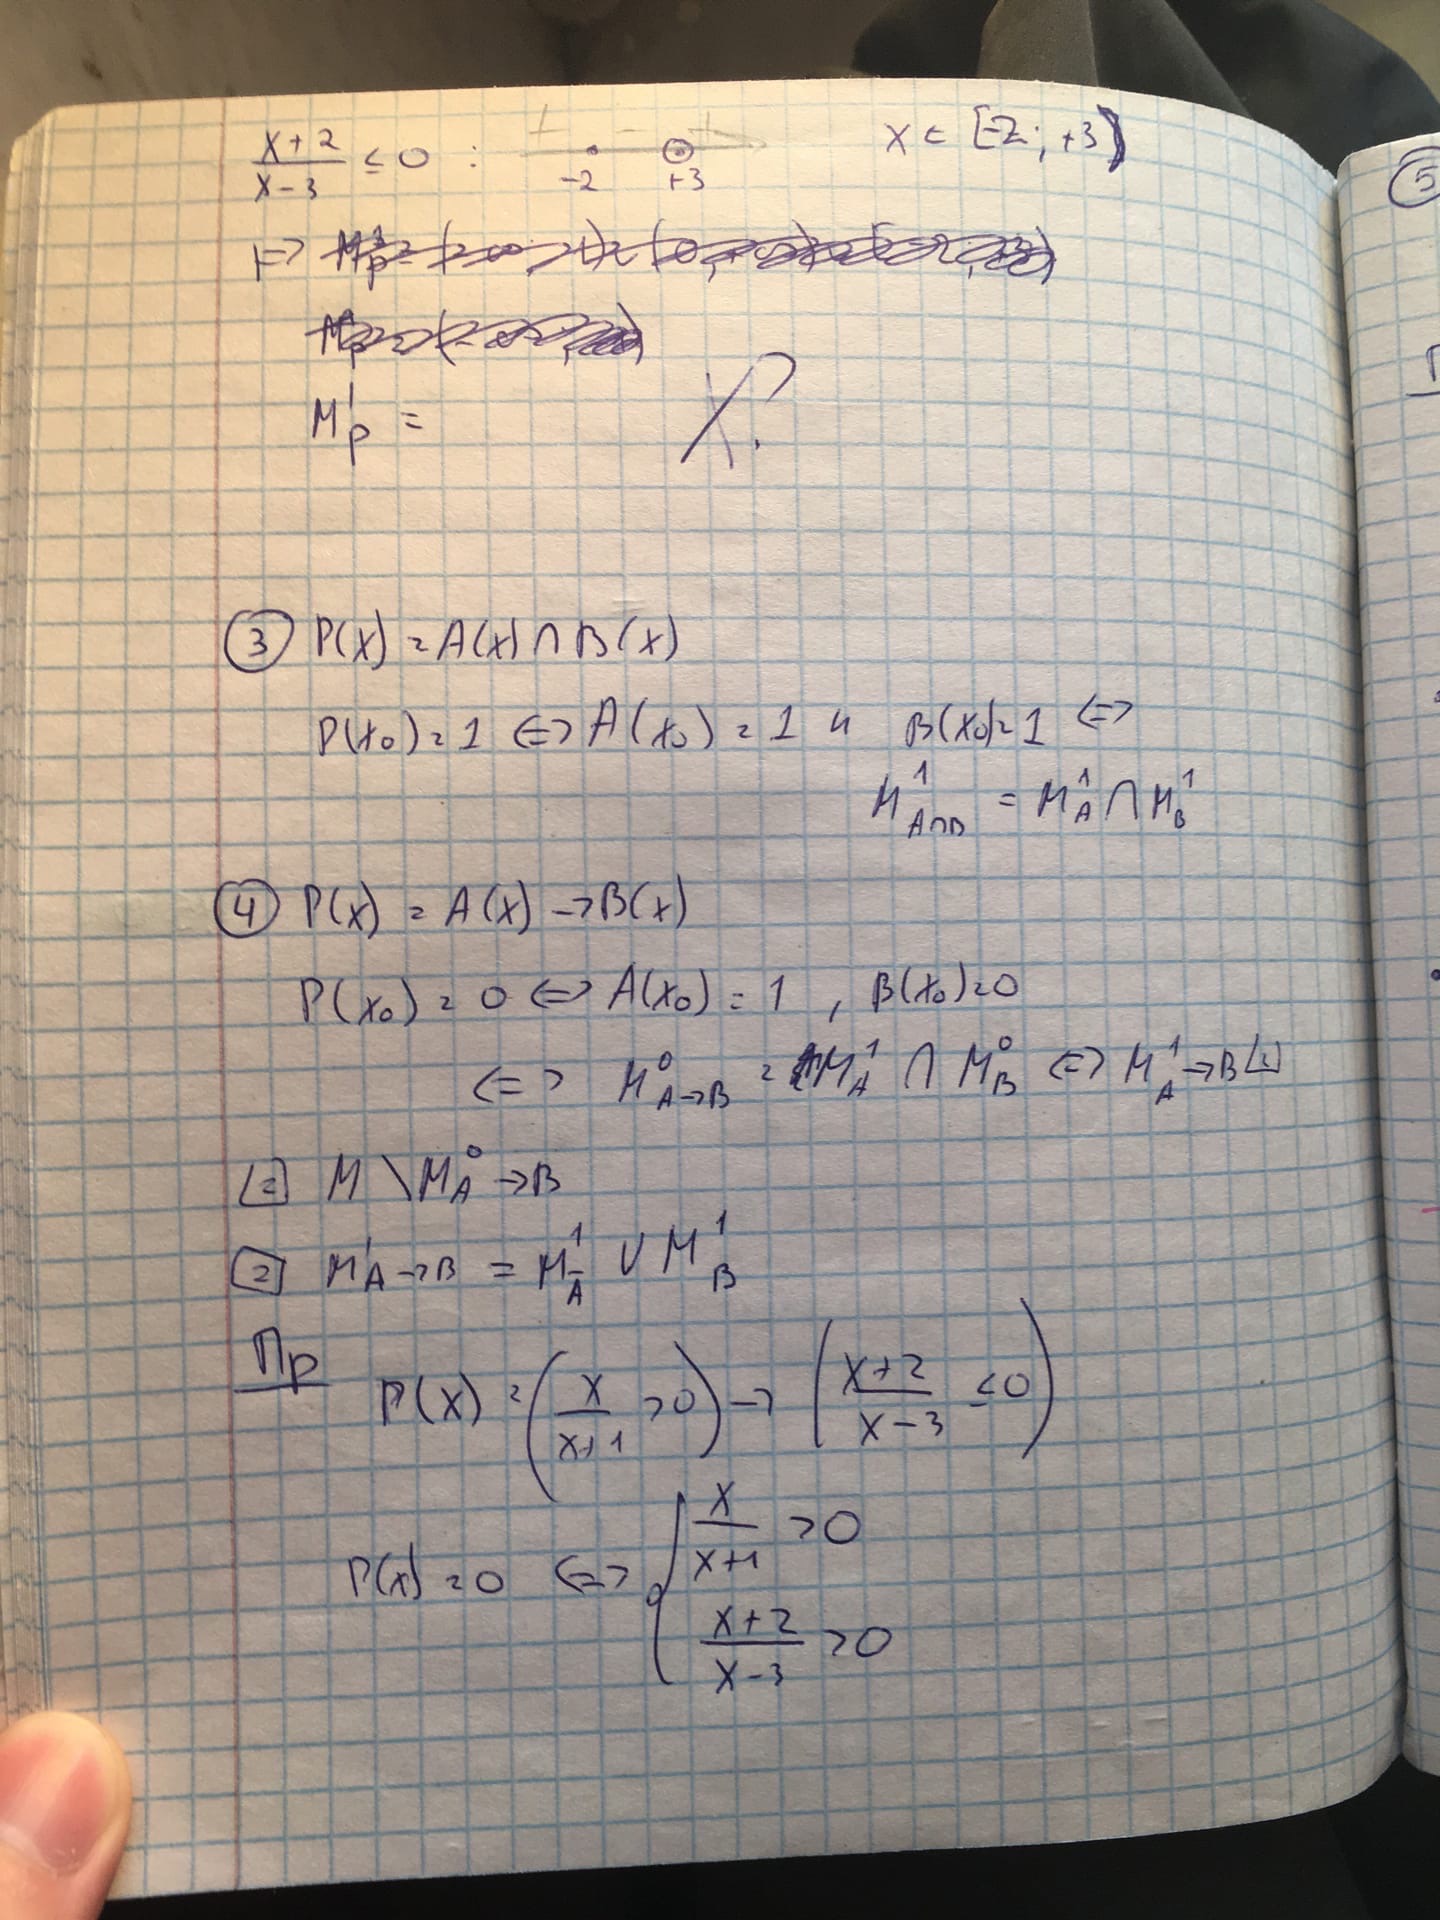 x+2/x-3 ≤ 0 : + - + -2 +3 x ∈ [-2; +3)
=>
M¹p = X?
③ P(x) = A(x) ∩ B(x)
P(x₀) = 1 <=> A(x₀) = 1 и B(x₀) = 1 <=>
M¹A∩B = M¹A ∩ M¹B
④ P(x) = A(x) → B(x)
P(x₀) = 0 <=> A(x₀) = 1 , B(x₀) = 0
<=> M⁰A→B = M¹A ∩ M⁰B <=> M¹A→B
M \ M⁰A→B
M¹A→B = M¹Ā ∪ M¹B
Пр
P(x) = (x/x+1 > 0) → (x+2/x-3 ≤ 0)
P(x) = 0 <=> { x/x+1 > 0
x+2/x-3 > 0
5